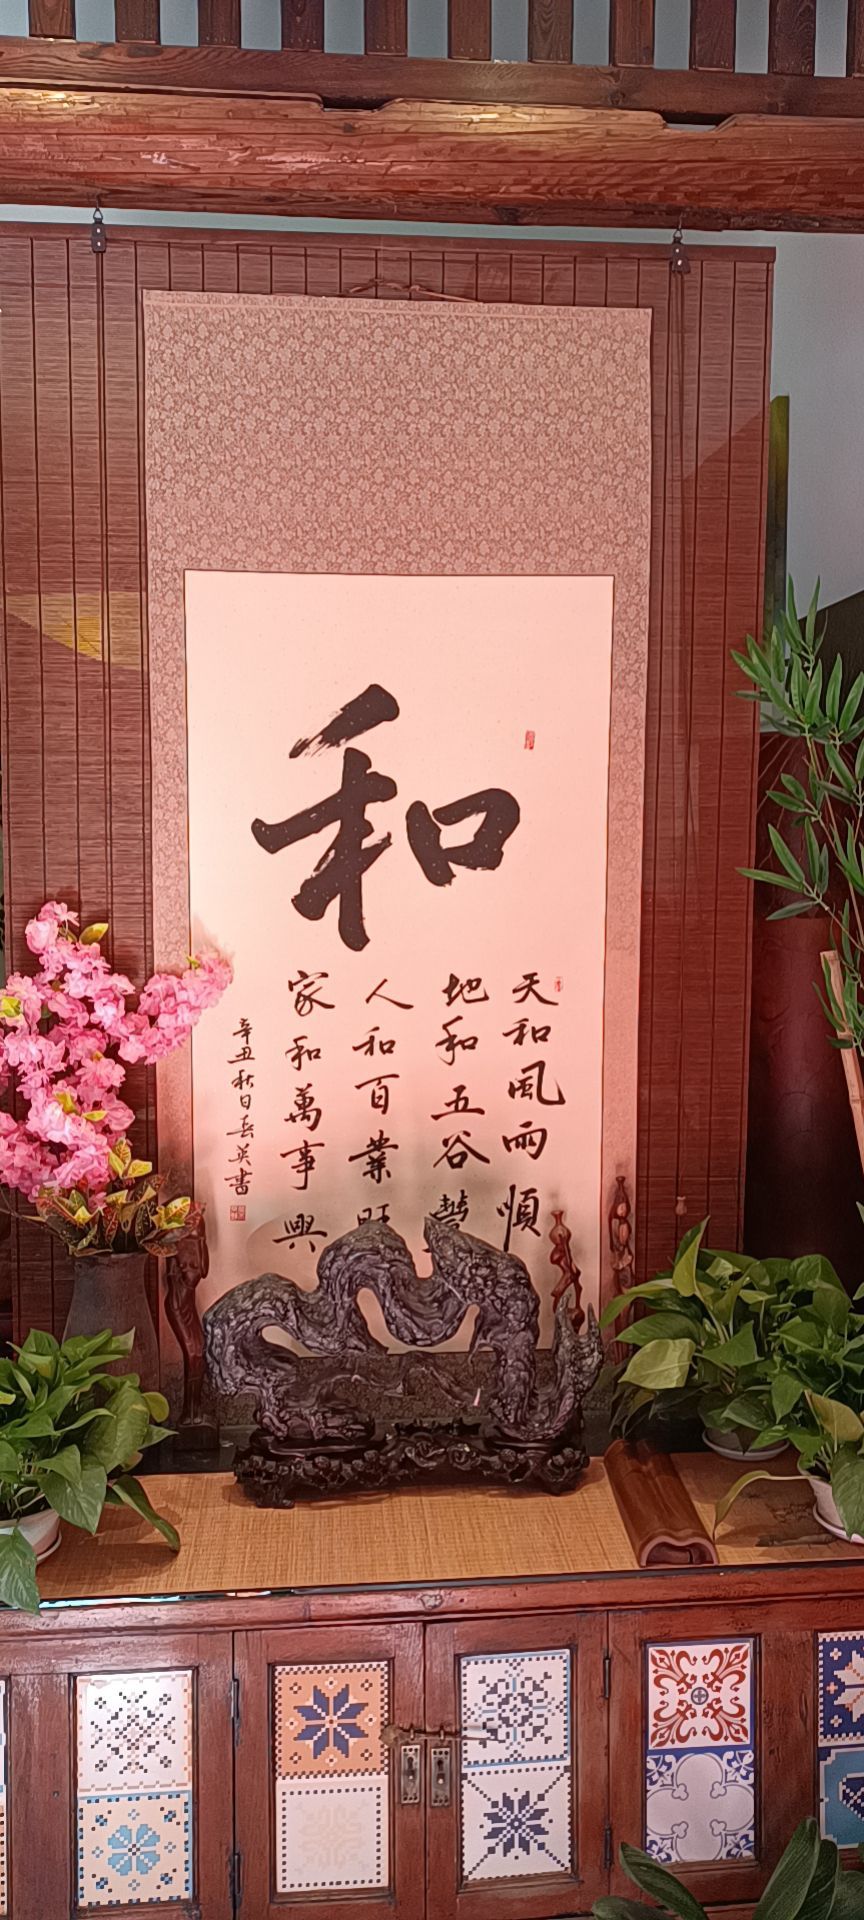 和
天和風雨順
地和五谷豐
人和百業旺
家和萬事興
辛丑秋日春英書